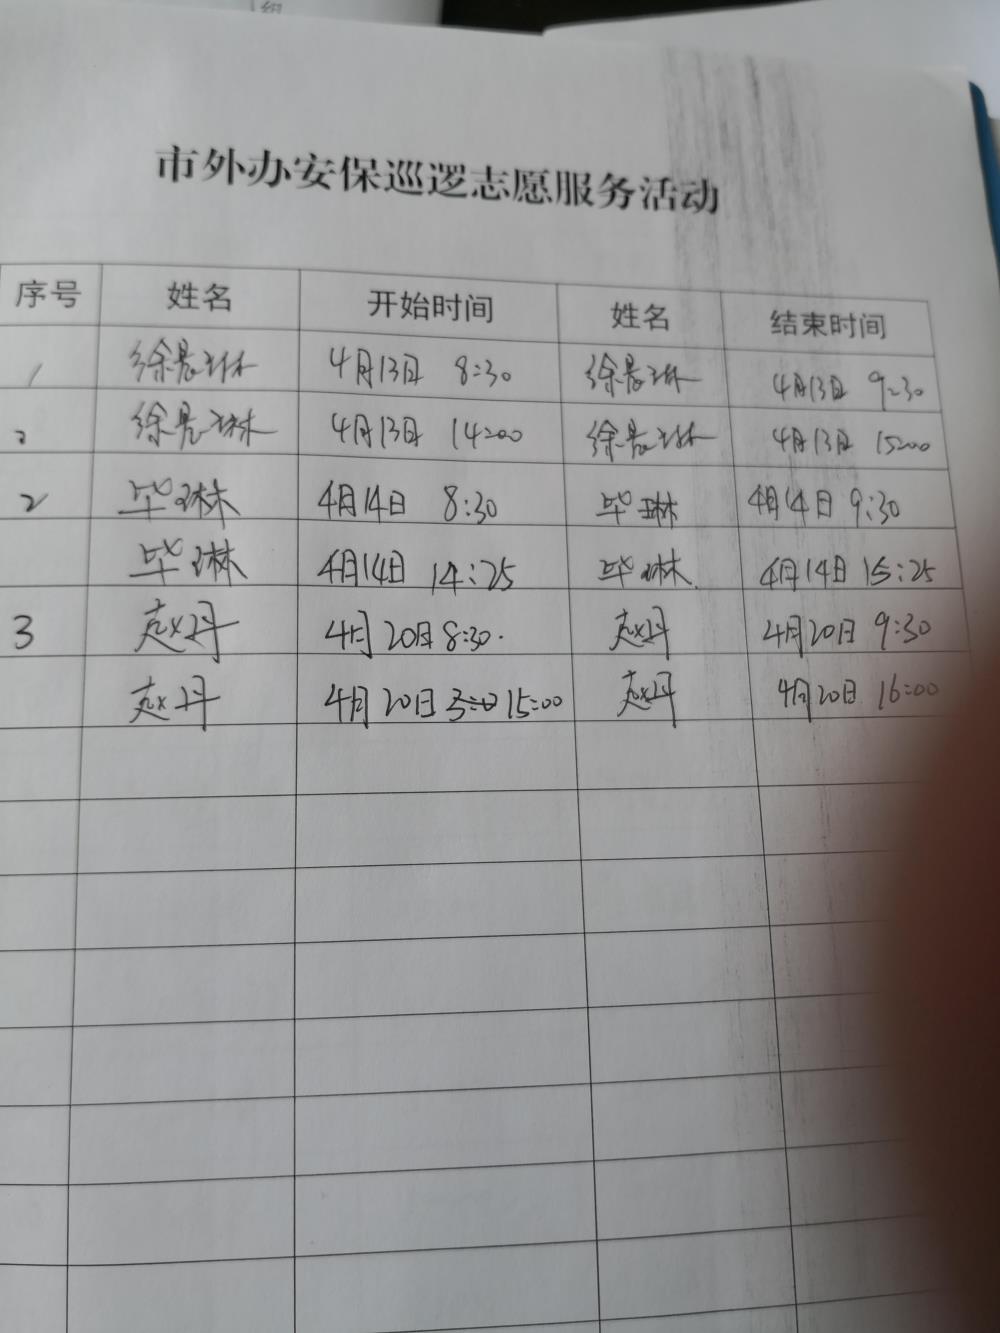 市外办安保巡逻志愿服务活动
序号 姓名 开始时间 姓名 结束时间
1 徐晨琳 4月13日 8:30 徐晨琳 4月13日 9:30
2 徐晨琳 4月13日 14:00 徐晨琳 4月13日 15:00
2 毕琳 4月14日 8:30 毕琳 4月14日 9:30
毕琳 4月14日 14:25 毕琳 4月14日 15:25
3 赵丹 4月20日 8:30 赵丹 4月20日 9:30
赵丹 4月20日 15:00 赵丹 4月20日 16:00